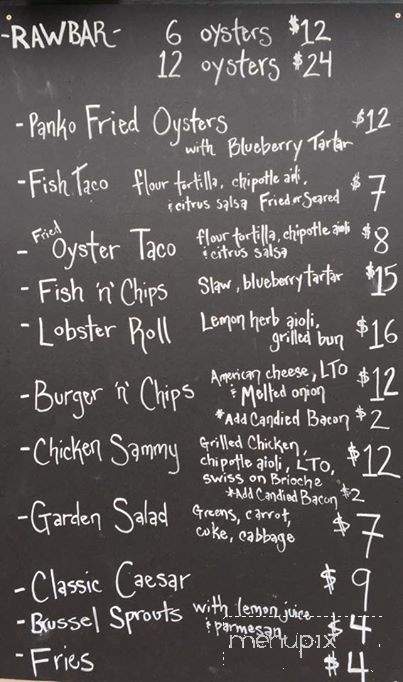 -RAWBAR- 6 oysters $12
12 oysters $24
- Panko Fried Oysters $12
with Blueberry Tartar
- Fish Taco flour tortilla, chipotle aili, $7
& citrus salsa Fried or Seared
- Fried Oyster Taco flour tortilla, chipotle aioli $8
& citrus salsa
- Fish 'n' Chips Slaw, blueberry tartar $15
- Lobster Roll Lemon herb aioli, $16
grilled bun
- Burger 'n' Chips American cheese, LTO $12
& Melted onion
*Add Candied Bacon $2
- Chicken Sammy Grilled Chicken, $12
chipotle aioli, LTO,
swiss on Brioche
*Add Candied Bacon $2
- Garden Salad Greens, carrot, $7
cuke, cabbage
- Classic Caesar $9
- Brussel Sprouts with lemon juice $4
& parmesan
- Fries $4
menupix